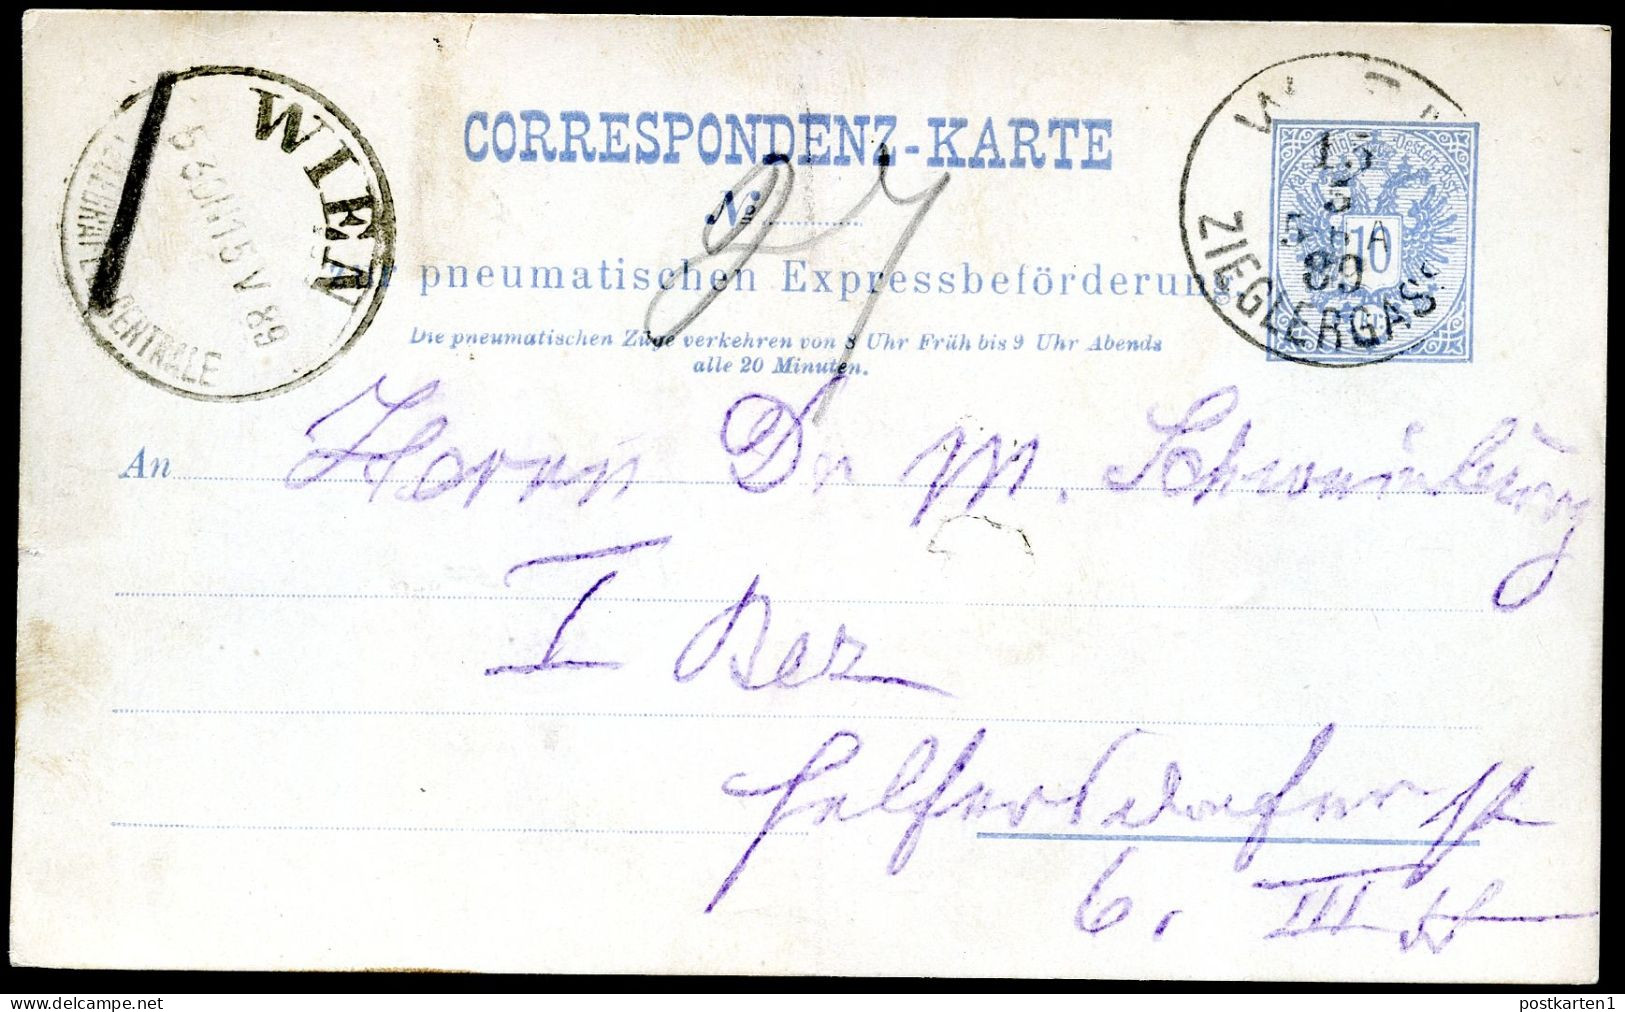 CORRESPONDENZ-KARTE
№ 27
zur pneumatischen Expressbeförderung.
Die pneumatischen Züge verkehren von 8 Uhr Früh bis 9 Uhr Abends
alle 20 Minuten.
WIEN
5 30 N 15 V 89
CENTRALE
15
5
89
ZIEGLERGASS
10
An Herrn Dr M. Schweinburg
I Bez
Seilerstr
6. III St
postkarten1